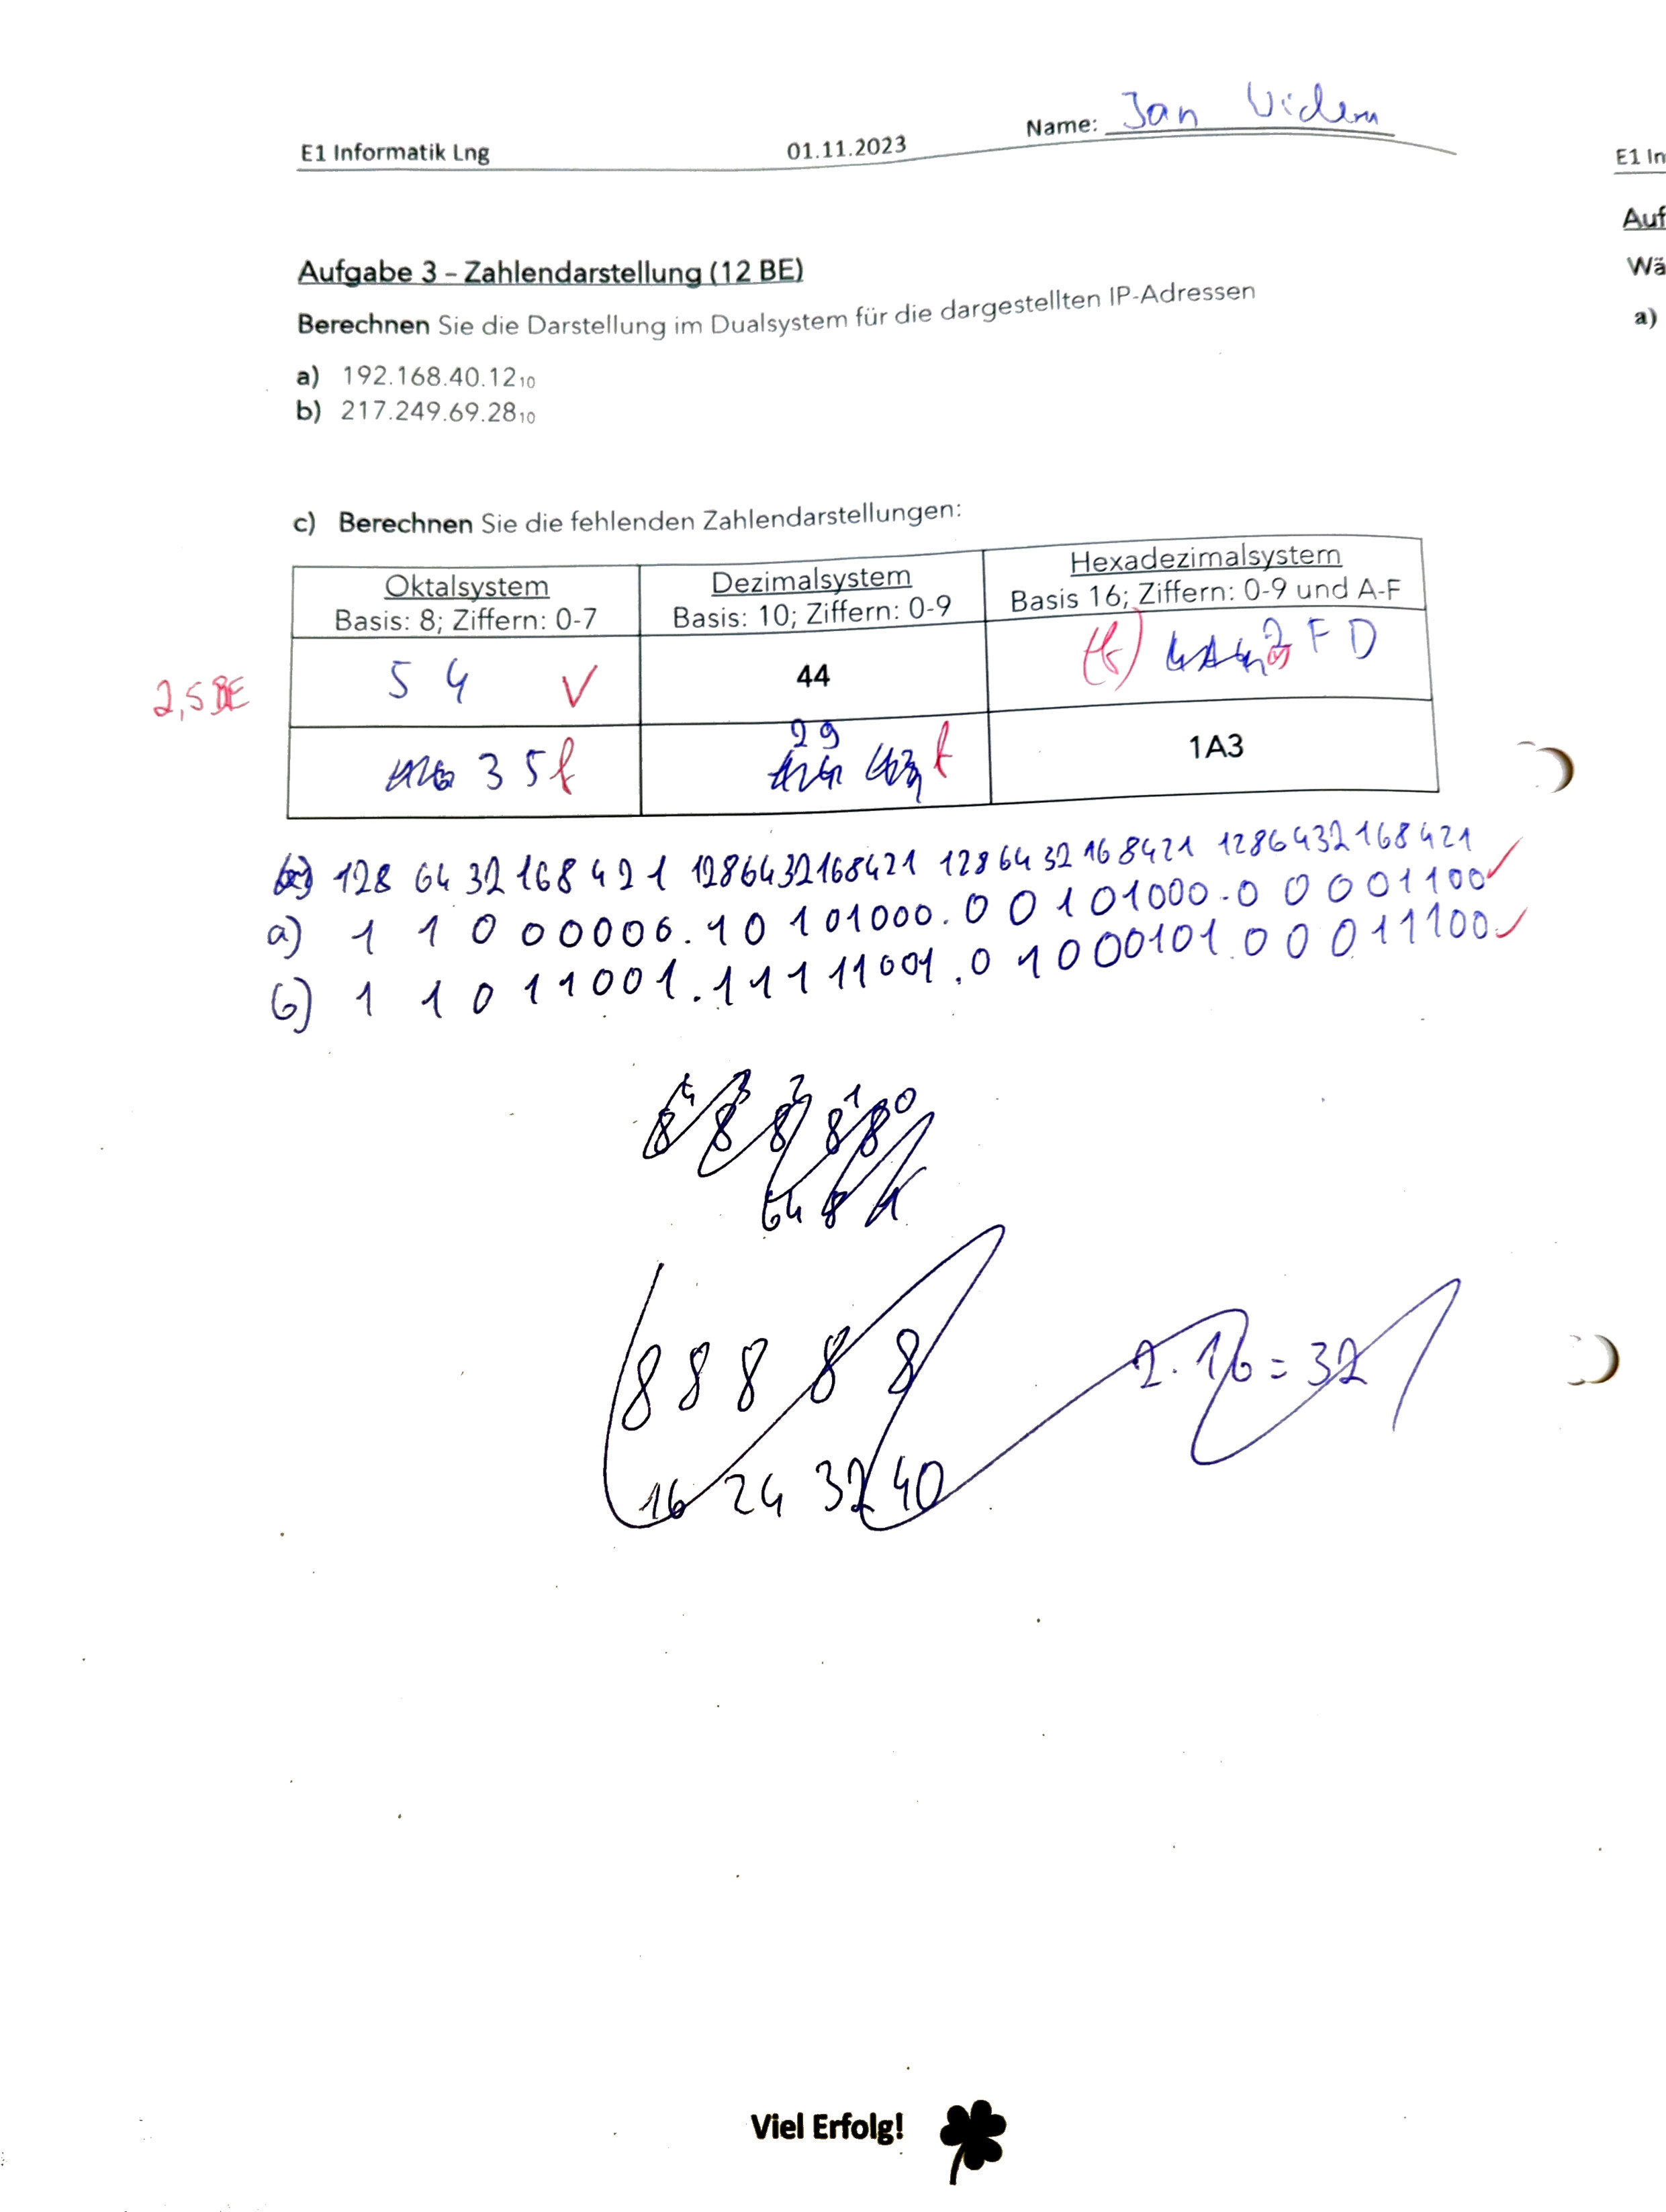 Name: Jan
E1 Informatik Lng 01.11.2023
E1 In
Auf
Aufgabe 3 – Zahlendarstellung (12 BE)
Wä
Berechnen Sie die Darstellung im Dualsystem für die dargestellten IP-Adressen
a)
a) 192.168.40.12₁₀
b) 217.249.69.28₁₀
c) Berechnen Sie die fehlenden Zahlendarstellungen:
Oktalsystem Dezimalsystem Hexadezimalsystem
Basis: 8; Ziffern: 0-7 Basis: 10; Ziffern: 0-9 Basis 16; Ziffern: 0-9 und A-F
2,5 BE 54 44 (f) 2 F D
35 f 29 f 1A3
128 64 32 16 8 4 2 1 128 64 32 16 8 4 2 1 128 64 32 16 8 4 2 1 128 64 32 16 8 4 2 1
a) 1 1 0 0 0 0 0 0. 1 0 1 0 1 0 0 0. 0 0 1 0 1 0 0 0. 0 0 0 0 1 1 0 0
b) 1 1 0 1 1 0 0 1. 1 1 1 1 1 0 0 1. 0 1 0 0 0 1 0 1. 0 0 0 1 1 1 0 0
8⁴ 8³ 8² 8¹ 8⁰
64 8 1
8 8 8 8 8 2·16=32
16 24 32 40
Viel Erfolg!